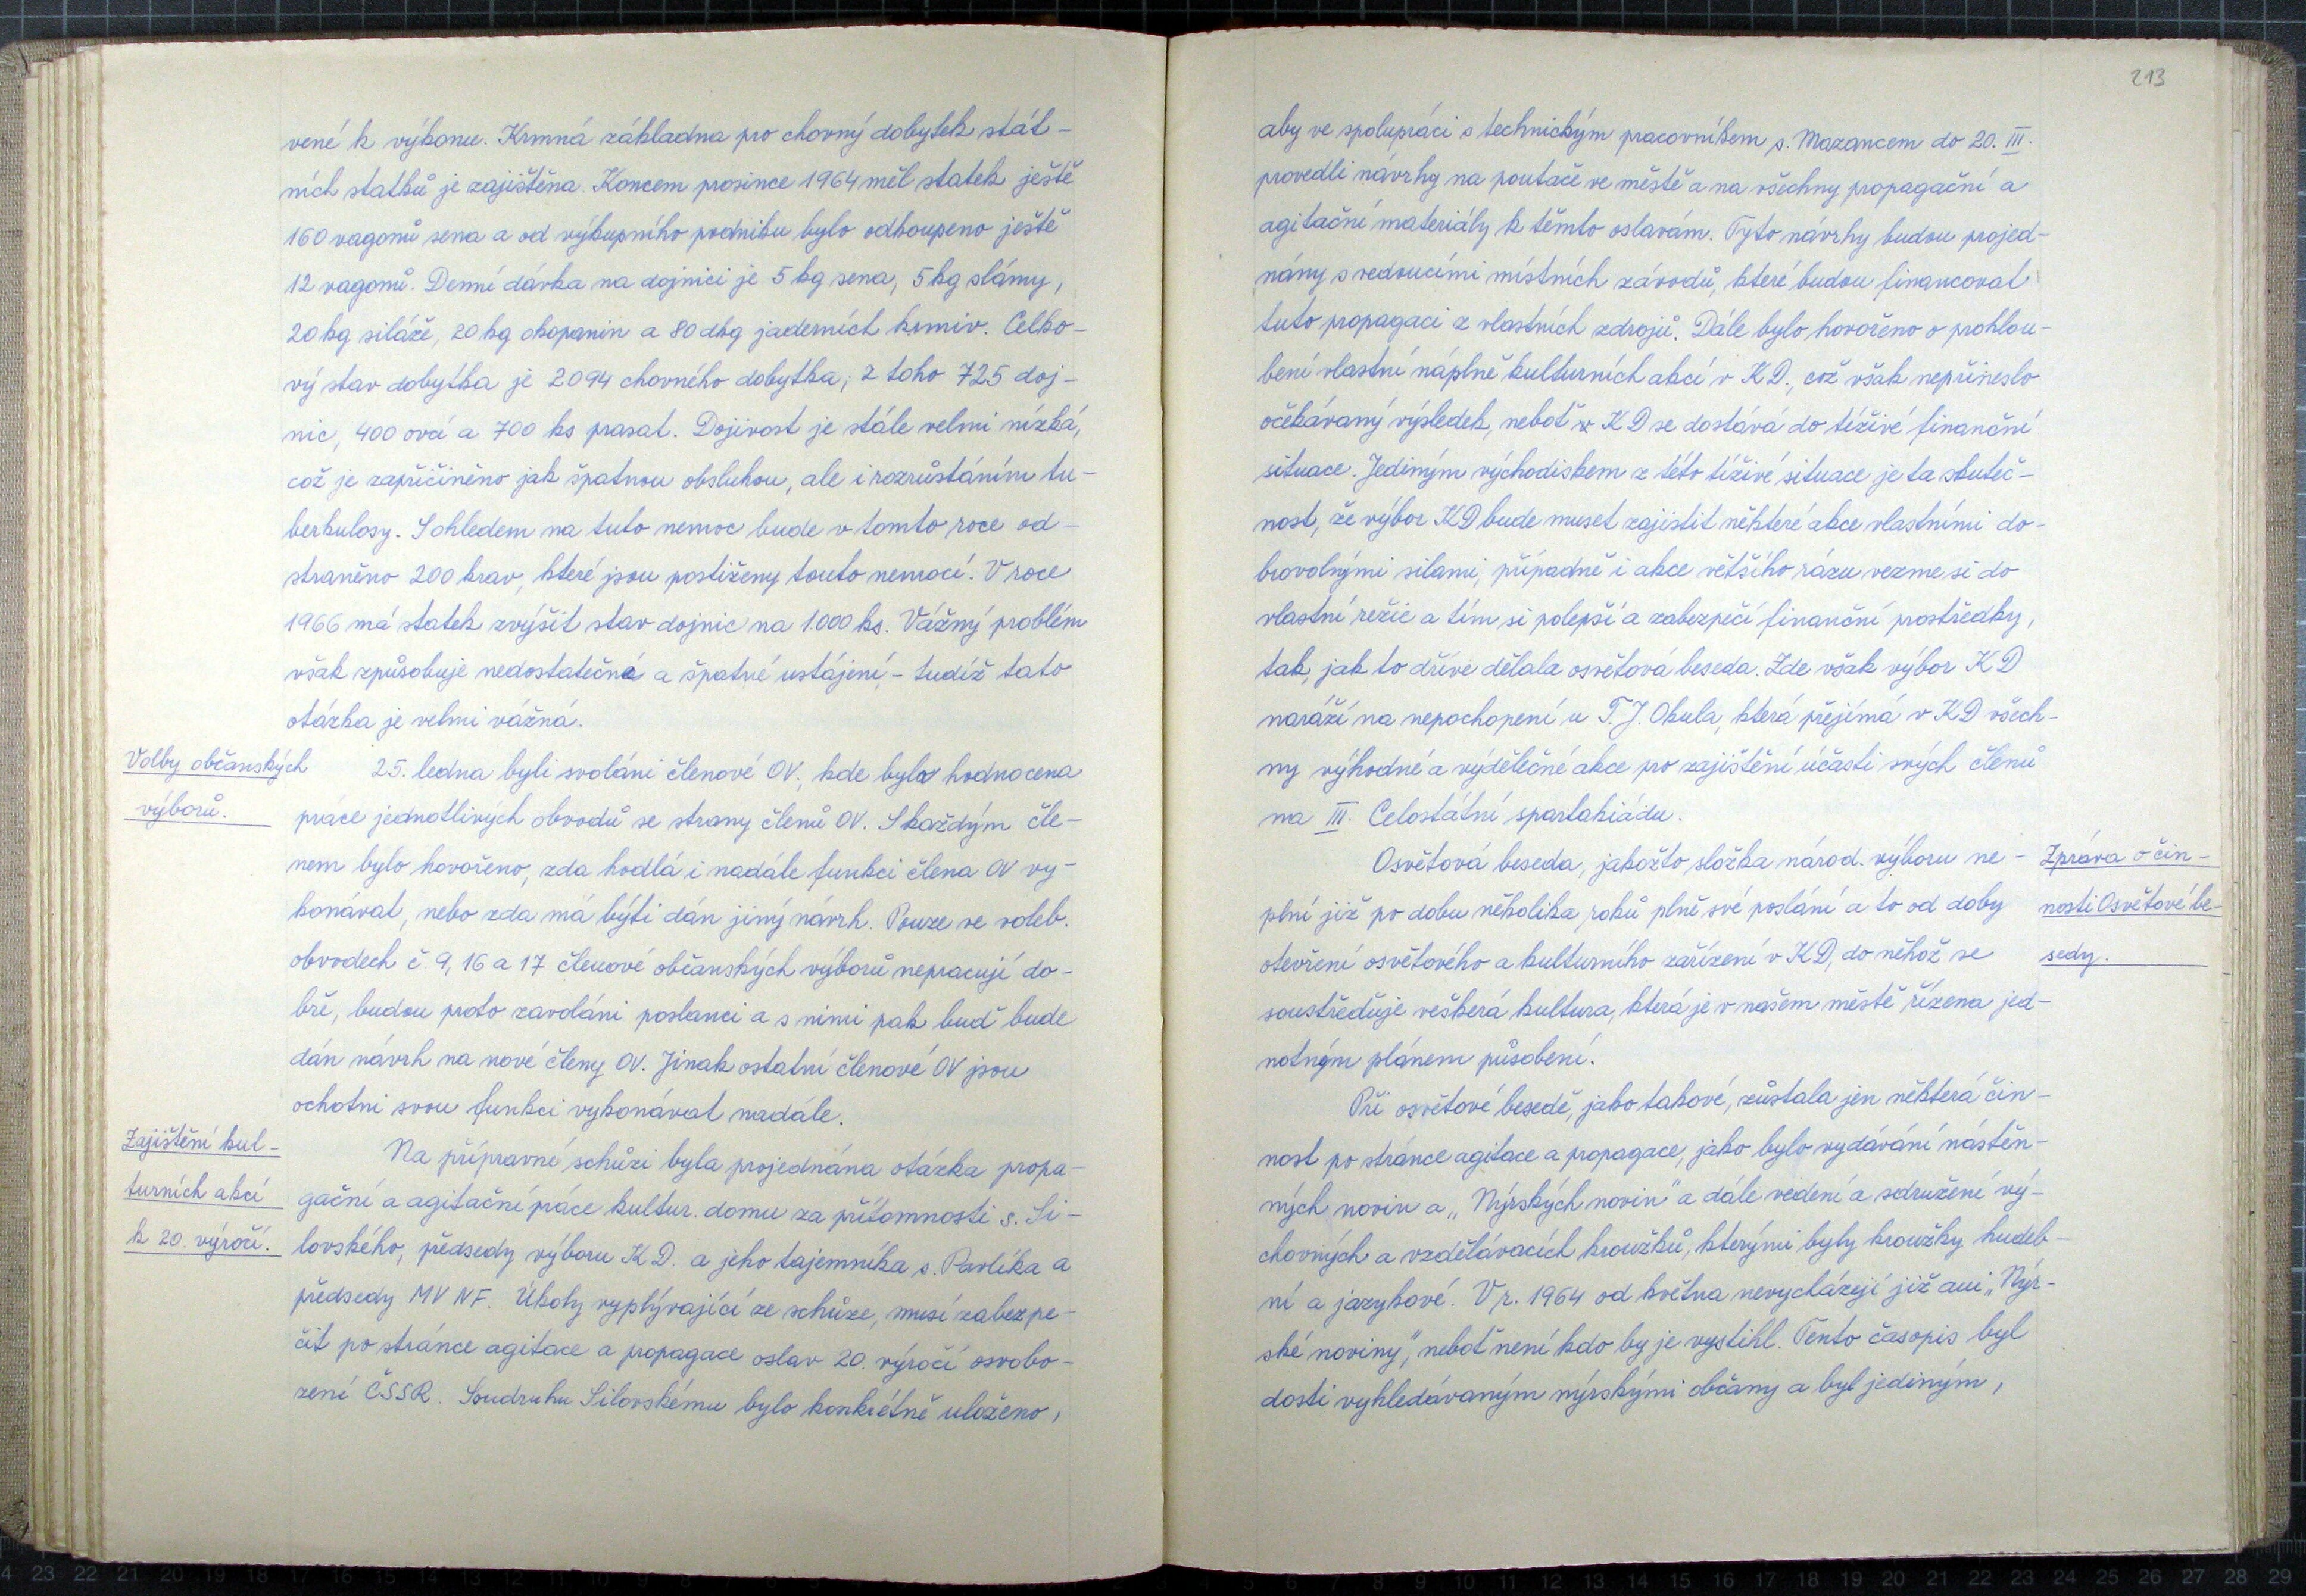 vené k výkonu. Krmná základna pro chovný dobytek stát-
ních statků je zajištěna. Koncem prosince 1964 měl statek ještě
160 vagonů sena a od výkupního podniku bylo odkoupeno ještě
12 vagonů. Denní dávka na dojnici je 5 kg sena, 5 kg slámy,
20 kg siláže, 20 kg okopanin a 80 dkg jaderních krmiv. Celko-
vý stav dobytka je 2094 chovného dobytka; z toho 725 doj-
nic, 400 ovcí a 700 ks prasat. Dojivost je stále velmi nízká,
což je zapřičiněno jak špatnou obsluhou, ale i rozrůstáním tu-
berkulosy. S ohledem na tuto nemoc bude v tomto roce od-
straněno 200 krav, které jsou postiženy touto nemocí. V roce
1966 má statek zvýšit stav dojnic na 1.000 ks. Vážný problém
však způsobuje nedostatečné a špatné ustájení, - tudíž tato
otázka je velmi vážná.
Volby občanských
výborů.
25. ledna byli svoláni členové OV., kde byla hodnocena
práce jednotlivých obvodů se strany členů OV. S každým čle-
nem bylo hovořeno, zda hodlá i nadále funkci člena OV vy-
konávat, nebo zda má býti dán jiný návrh. Pouze ve voleb.
obvodech č. 9, 16 a 17 členové občanských výborů nepracují do-
bře, budou proto zavoláni poslanci a s nimi pak buď bude
dán návrh na nové členy OV. Jinak ostatní členové OV jsou
ochotni svou funkci vykonávat nadále.
Zajištění kul-
turních akcí
k 20. výročí.
Na přípravné schůzi byla projednána otázka propa-
gační a agitační práce kultur. domu za přítomnosti s. Si-
lovského, předsedy výboru K.D. a jeho tajemníka s. Pavlíka a
předsedy MV NF. Úkoly vyplývající ze schůze, musí zabezpe-
čit po stránce agitace a propagace oslav 20. výročí osvobo-
zení ČSSR. Soudruhu Silovskému bylo konkrétně uloženo,
213
aby ve spolupráci s technickým pracovníkem s. Mazancem do 20. III.
provedli návrhy na poutače ve městě a na všechny propagační a
agitační materiály k těmto oslavám. Tyto návrhy budou projed-
nány s vedoucími místních závodů, které budou financovat
tuto propagaci z vlastních zdrojů. Dále bylo hovořeno o prohlou-
bení vlastní náplně kulturních akcí v K.D., což však nepřineslo
očekávaný výsledek, neboť KD se dostává do tíživé finanční
situace. Jediným východiskem z této tíživé situace je ta skuteč-
nost, že výbor KD bude muset zajistit některé akce vlastními do-
brovolnými silami, případně i akce většího rázu vezme si do
vlastní režie a tím si polepší a zabezpečí finanční prostředky,
tak, jak to dříve dělala osvětová beseda. Zde však výbor KD
naráží na nepochopení u T.J. Okula, která přejímá v KD všech-
ny výhodné a výdělečné akce pro zajištění účasti svých členů
na III. Celostátní spartakiádu.
Osvětová beseda, jakožto složka národ. výboru ne-
plní již po dobu několika roků plně své poslání a to od doby
otevření osvětového a kulturního zařízení v KD, do něhož se
soustřeďuje veškerá kultura, která je v našem městě řízena jed-
notným plánem působení.
Zpráva o čin-
nosti Osvětové be-
sedy.
Při osvětové besedě, jako takové, zůstala jen některá čin-
nost po stránce agitace a propagace, jako bylo vydávání nástěn-
ných novin a „Nýrských novin" a dále vedení a sdružení vý-
chovných a vzdělávacích kroužků, kterými byly kroužky hudeb-
ní a jazykové. V r. 1964 od května nevycházejí již ani „Nýr-
ské noviny", neboť není kdo by je vystihl. Tento časopis byl
dosti vyhledávaným nýrskými občany a byl jediným,